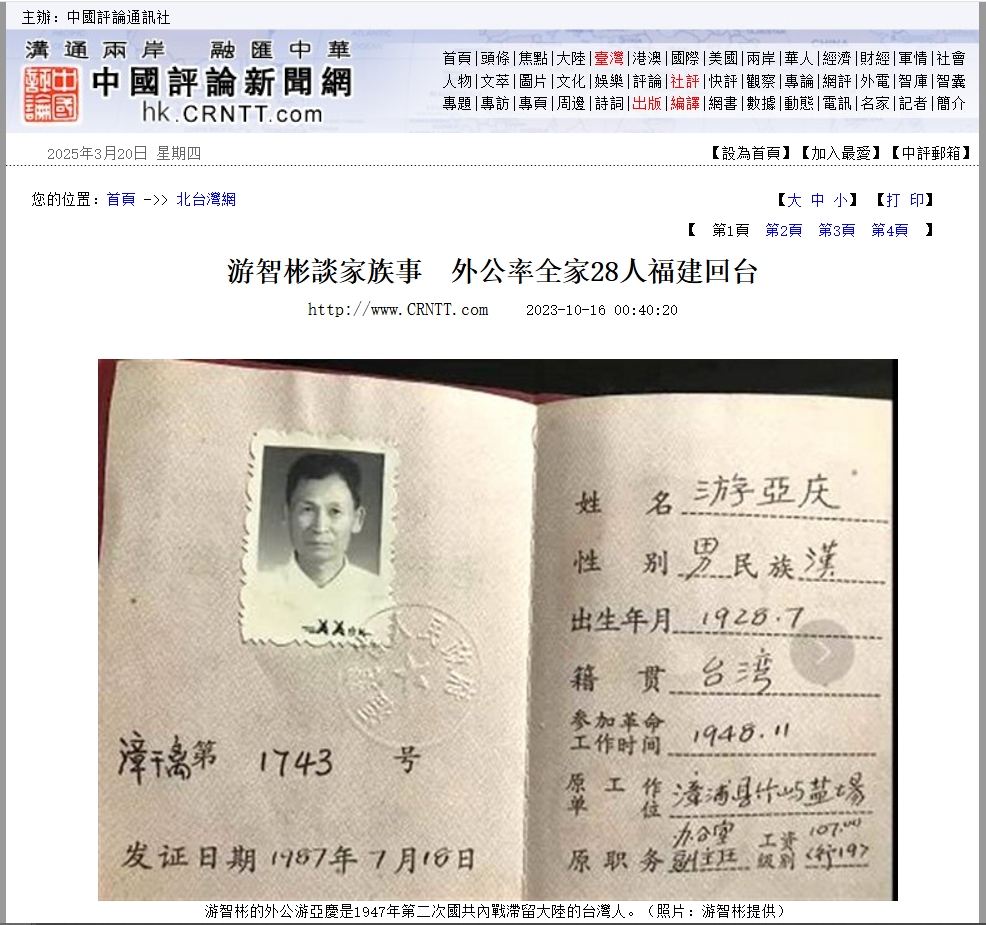 主辦：中國評論通訊社
溝通兩岸 融匯中華
中國評論新聞網
hk.CRNTT.com
首頁|頭條|焦點|大陸|臺灣|港澳|國際|美國|兩岸|華人|經濟|財經|軍情|社會
人物|文萃|圖片|文化|娛樂|評論|社評|快評|觀察|專論|網評|外電|智庫|智囊
專題|專訪|專頁|周邊|詩詞|出版|編譯|網書|數據|動態|電訊|名家|記者|簡介
2025年3月20日 星期四
【設為首頁】【加入最愛】【中評郵箱】
您的位置：首頁 ->> 北台灣網
【大 中 小】 【打 印】
【 第1頁 第2頁 第3頁 第4頁 】
游智彬談家族事　外公率全家28人福建回台
http://www.CRNTT.com 2023-10-16 00:40:20
漳干离第 1743 号
发证日期 1987年7月18日
姓 名 游亞庆
性 别 男 民族 漢
出生年月 1928.7
籍 贯 台湾
参加革命
工作时间 1948.11
原工作
单 位 漳浦县竹屿盐場
原职务 办公室
副主任
工资
级别 107.00
(行19)
游智彬的外公游亞慶是1947年第二次國共內戰滯留大陸的台灣人。（照片：游智彬提供）